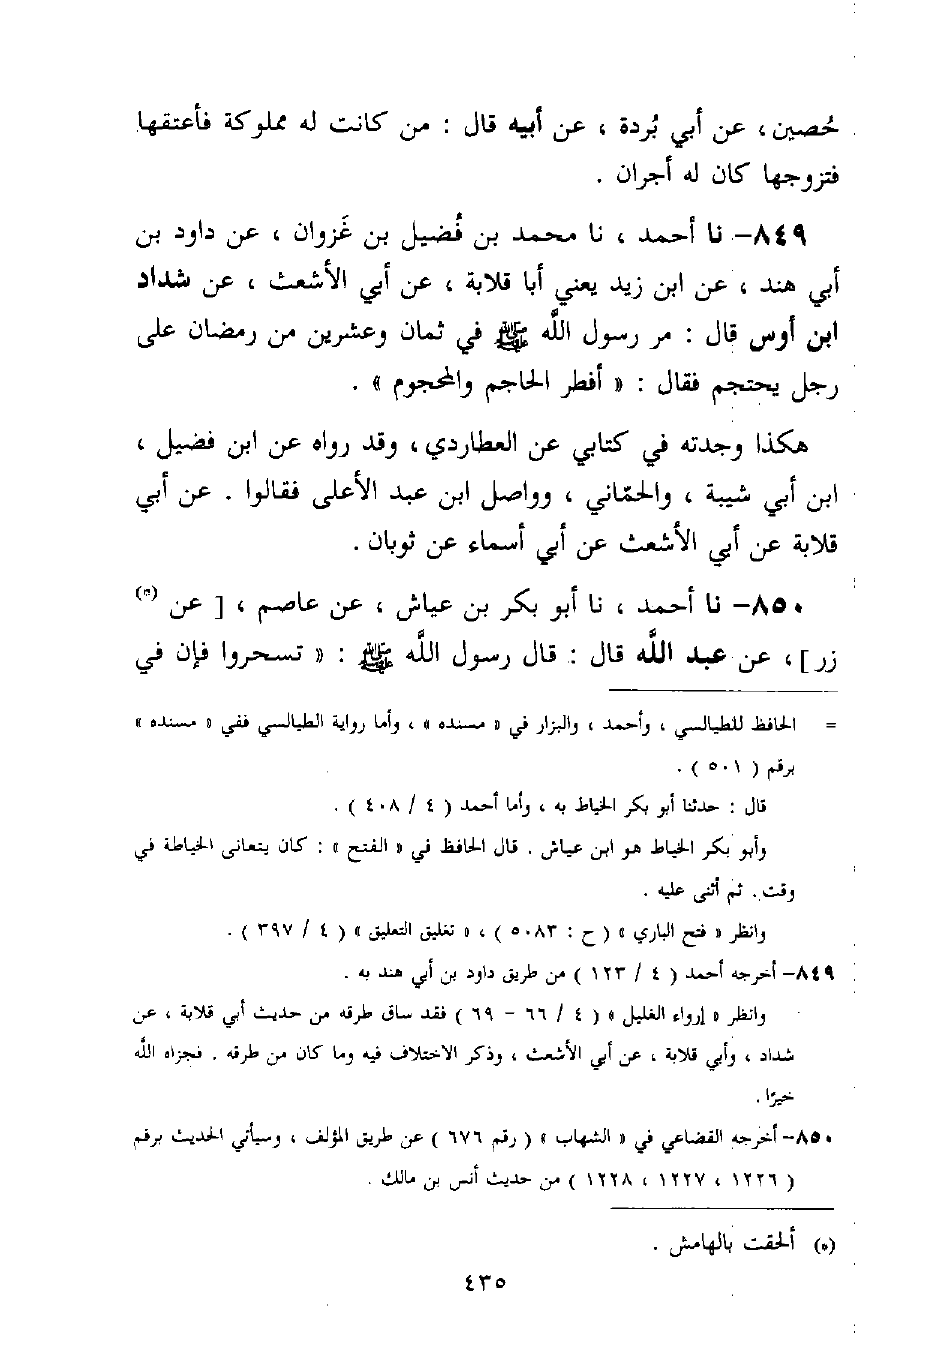 حُصين، عن أبي بُردة ، عن أبيه قال : من كانت له مملوكة فأعتقها
فتزوجها كان له أجران .
٨٤٩- نا أحمد ، نا محمد بن فُضيل بن غَزوان ، عن داود بن
أبي هند ، عن ابن زيد يعني أبا قلابة ، عن أبي الأشعث ، عن شداد
ابن أوس قال : مر رسول الله ﷺ في ثمان وعشرين من رمضان على
رجل يحتجم فقال : « أفطر الحاجم والمحجوم » .
هكذا وجدته في كتابي عن العطاردي، وقد رواه عن ابن فضيل ،
ابن أبي شيبة ، والحمّاني ، وواصل ابن عبد الأعلى فقالوا . عن أبي
قلابة عن أبي الأشعث عن أبي أسماء عن ثوبان .
٨٥٠- نا أحمد ، نا أبو بكر بن عياش ، عن عاصم ، [ عن (*)
زر ]، عن عبد الله قال : قال رسول الله ﷺ : « تسحروا فإن في
= الحافظ للطيالسي ، وأحمد ، والبزار في « مسنده » ، وأما رواية الطيالسي ففي « مسنده »
برقم ( ٥٠١ ) .
قال : حدثنا أبو بكر الخياط به ، وأما أحمد ( ٤ / ٤٠٨ ) .
وأبو بكر الخياط هو ابن عياش . قال الحافظ في « الفتح » : كان يتعانى الخياطة في
وقت . ثم أثنى عليه .
وانظر « فتح الباري » ( ح : ٥٠٨٣ ) ، « تغليق التعليق » ( ٤ / ٣٩٧ ) .
٨٤٩- أخرجه أحمد ( ٤ / ١٢٣ ) من طريق داود بن أبي هند به .
وانظر « إرواء الغليل » ( ٤ / ٦٦ - ٦٩ ) فقد ساق طرقه من حديث أبي قلابة ، عن
شداد ، وأبي قلابة ، عن أبي الأشعث ، وذكر الاختلاف فيه وما كان من طرقه . فجزاه الله
خيرًا .
٨٥٠- أخرجه القضاعي في « الشهاب » ( رقم ٦٧٦ ) عن طريق المؤلف ، وسيأتي الحديث برقم
( ١٢٢٦ ، ١٢٢٧ ، ١٢٢٨ ) من حديث أنس بن مالك .
(*) ألحقت بالهامش .
٤٣٥